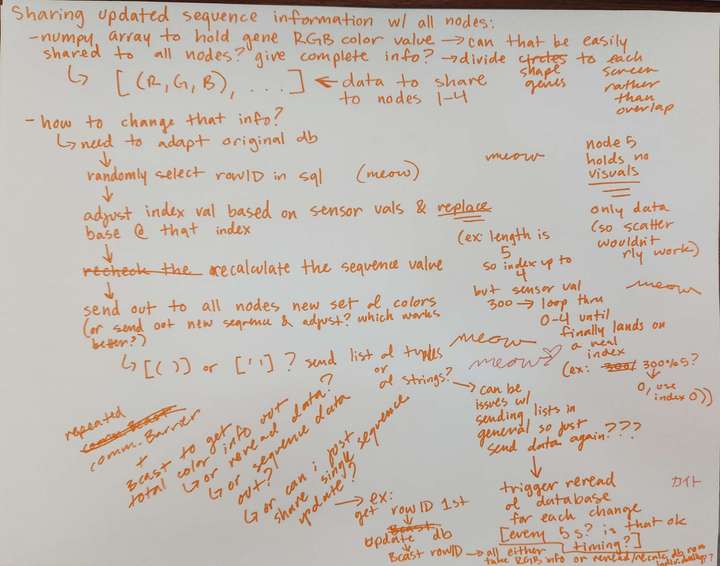 Sharing updated sequence information w/ all nodes:
- numpy array to hold gene RGB color value → can that be easily
shared to all nodes? give complete info? → divide circles to each
shape screen
genes rather
than
overlap
↳ [(R,G,B), ...] ← data to share
to nodes 1-4
- how to change that info?
↳ need to adapt original db
↓
randomly select rowID in sql (meow)
meow
node 5
holds no
visuals
only data
(so scatter
wouldn't
rly work)
↓
adjust index val based on sensor vals & replace
base @ that index
(ex: length is
5
so index up to
4
but sensor val
300 → loop thru
0-4 until
finally lands on
a real
index
(ex: 300/ 300%5?
↓
0, use
index 0))
meow
↓
recheck the recalculate the sequence value
↓
send out to all nodes new set of colors
(or send out new seqence & adjust? which works
better?)
meow
↳ [()] or [''] ? send list of tuples
or
of strings?
meow
→ can be
issues w/
sending lists in
general so just
send data again???
↓
trigger reread
of database
for each change
[every 5 s? is that ok
timing?]
カイト
repeated
comm.Bcast
comm.Barrier
+
Bcast to get
total color info out
↳ or reread data?
↳ or sequence data
out?
↳ or can i just
share single sequence
update?
→ ex:
get rowID 1st
Bcast
update db
↳ Bcast rowID → all either
take RGB info or reread/recalc db row